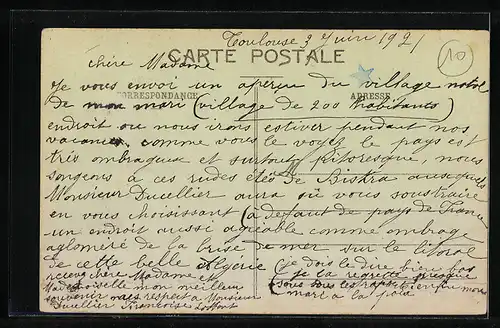 Toulouse 3 Juin 1921
10
chère Madame
CARTE POSTALE
Je vous envoi un aperçu du village
CORRESPONDANCE ADRESSE
de mon mari (village de 200 habitants)
endroit ou nous irons estiver pendant nos
vacances comme vous le voyez le pays est
très ombrageux et surtout pitoresque, nous
songeons à ces rudes étés de Biskra auxquels
Monsieur Ducellier aura où vous soustraire
en vous choisissant (à defaut de pays de France
un endroit aussi agréable comme ombrage
agloméré de la brise de mer sur le litoral
de cette belle Algérie (je dois le dire bien bas
recevez chère Madame et je la regrette
Mademoiselle mon meilleur sous tous les rapports bien que mon
souvenir mes respect à Monsieur mari
Ducellier Françoise